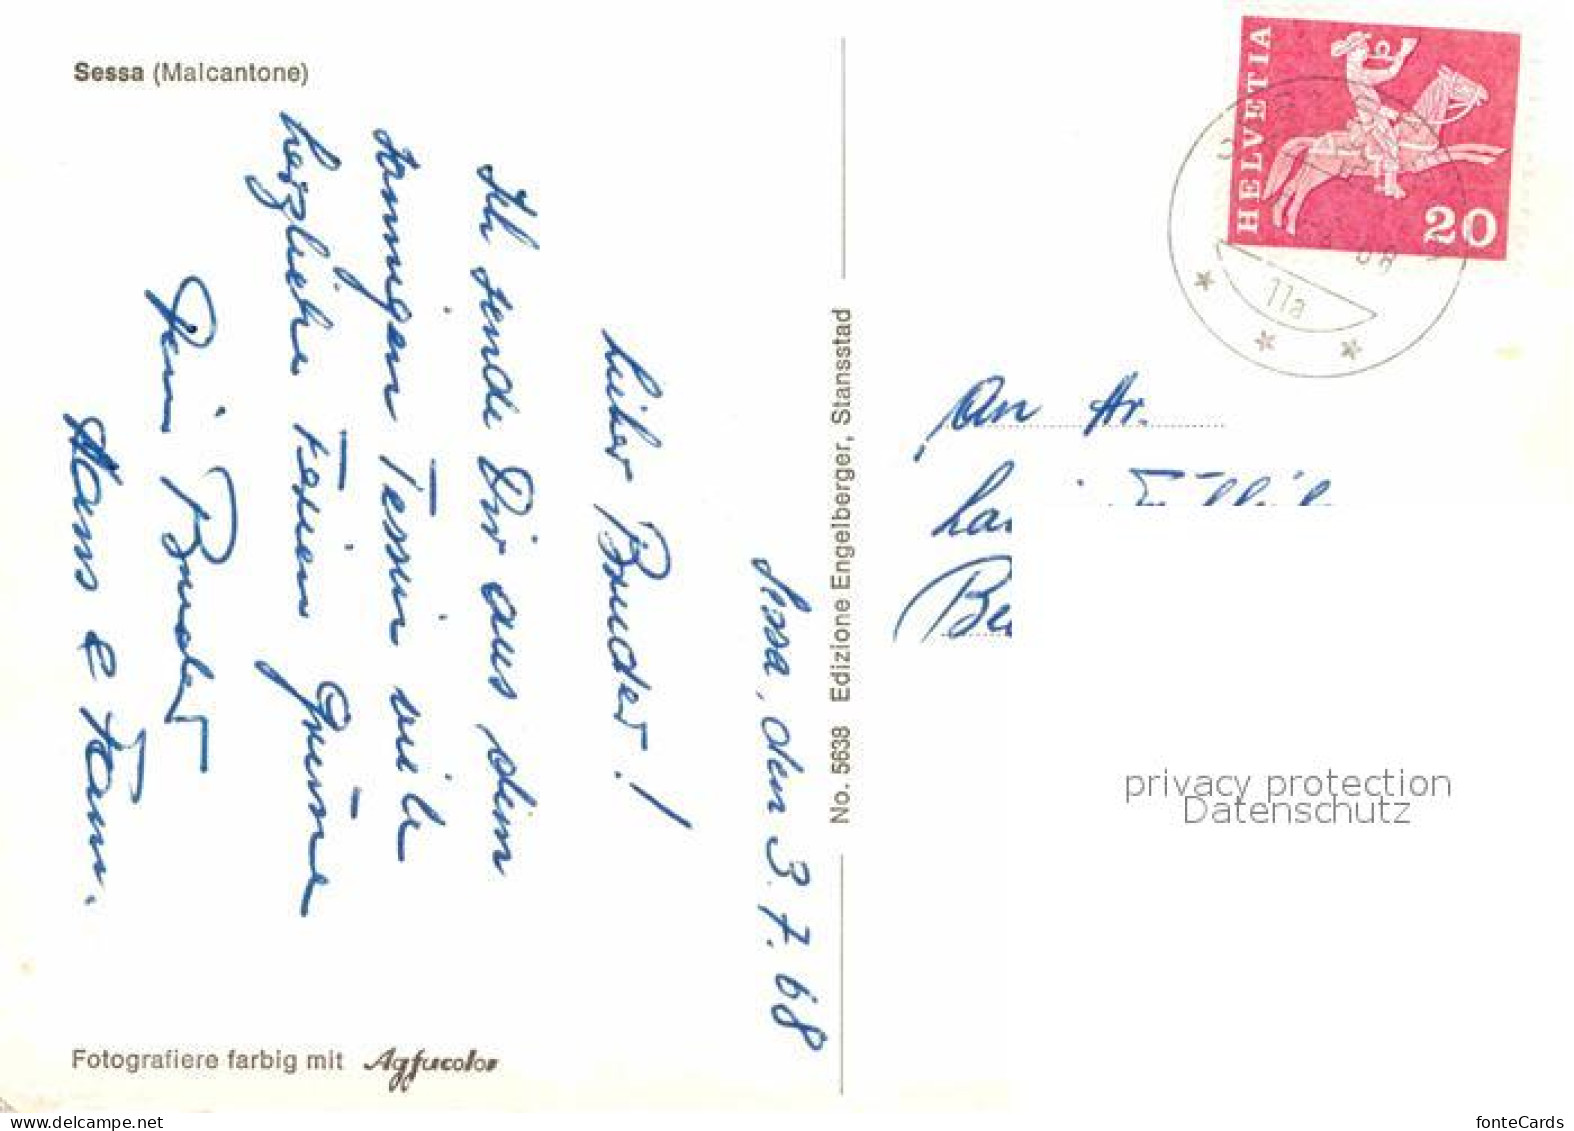 Sessa (Malcantone)
Sessa, den 3.7.68
Lieber Bruder!
Ich sende Dir aus dem
sonnigen Tessin viele
herzliche Ferien Grüsse
Dein Bruder
Hans & Fam.
Fotografiere farbig mit Agfacolor
No. 5638 Edizione Engelberger, Stansstad
HELVETIA
20
11a
An Hr.
privacy protection
Datenschutz
delcampe.net
fonteCards